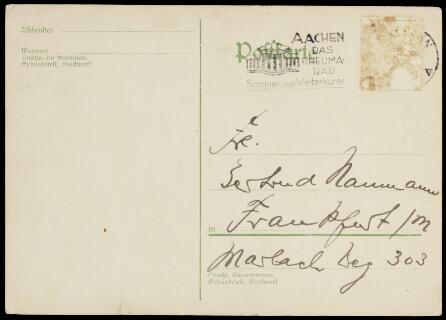 Absender
Wohnort
Straße, Hausnummer,
Gebäudeteil, Stockwerk
Postkarte
AACHEN
DAS
RHEUMA-
BAD
Sommer und Winterkuren
Frl.
Gertrud Naumann
Frankfurt/M
in
Marbach Weg 303
Straße, Hausnummer,
Gebäudeteil, Stockwerk